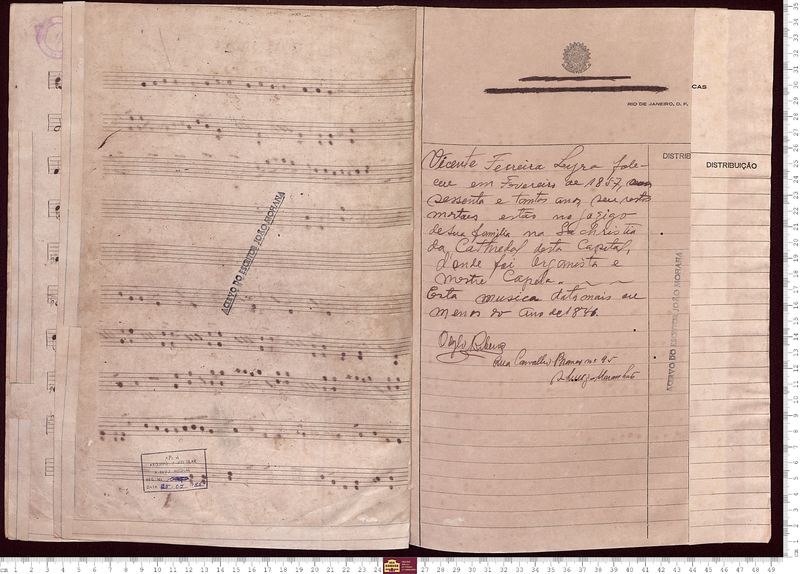 ACERVO DO ESCRITOR JOÃO MOHANA
CAS
RIO DE JANEIRO, D. F.
DISTRIB
DISTRIBUIÇÃO
Vicente Ferreira Lyra fale-
ceu em Fevereiro de 1857,
sessenta e tantos anos seus restos
mortais estão no jasigo
de sua familia na Sachristia
da Cathedral desta Capital,
d'onde foi Organista e
mestre Capela.
Esta musica data mais ou
menos do ano de 1840.
Ribeiro
Rua Carvalho Branco nº 95
S. Luiz - Maranhão
ACERVO DO ESCRITOR JOÃO MOHANA